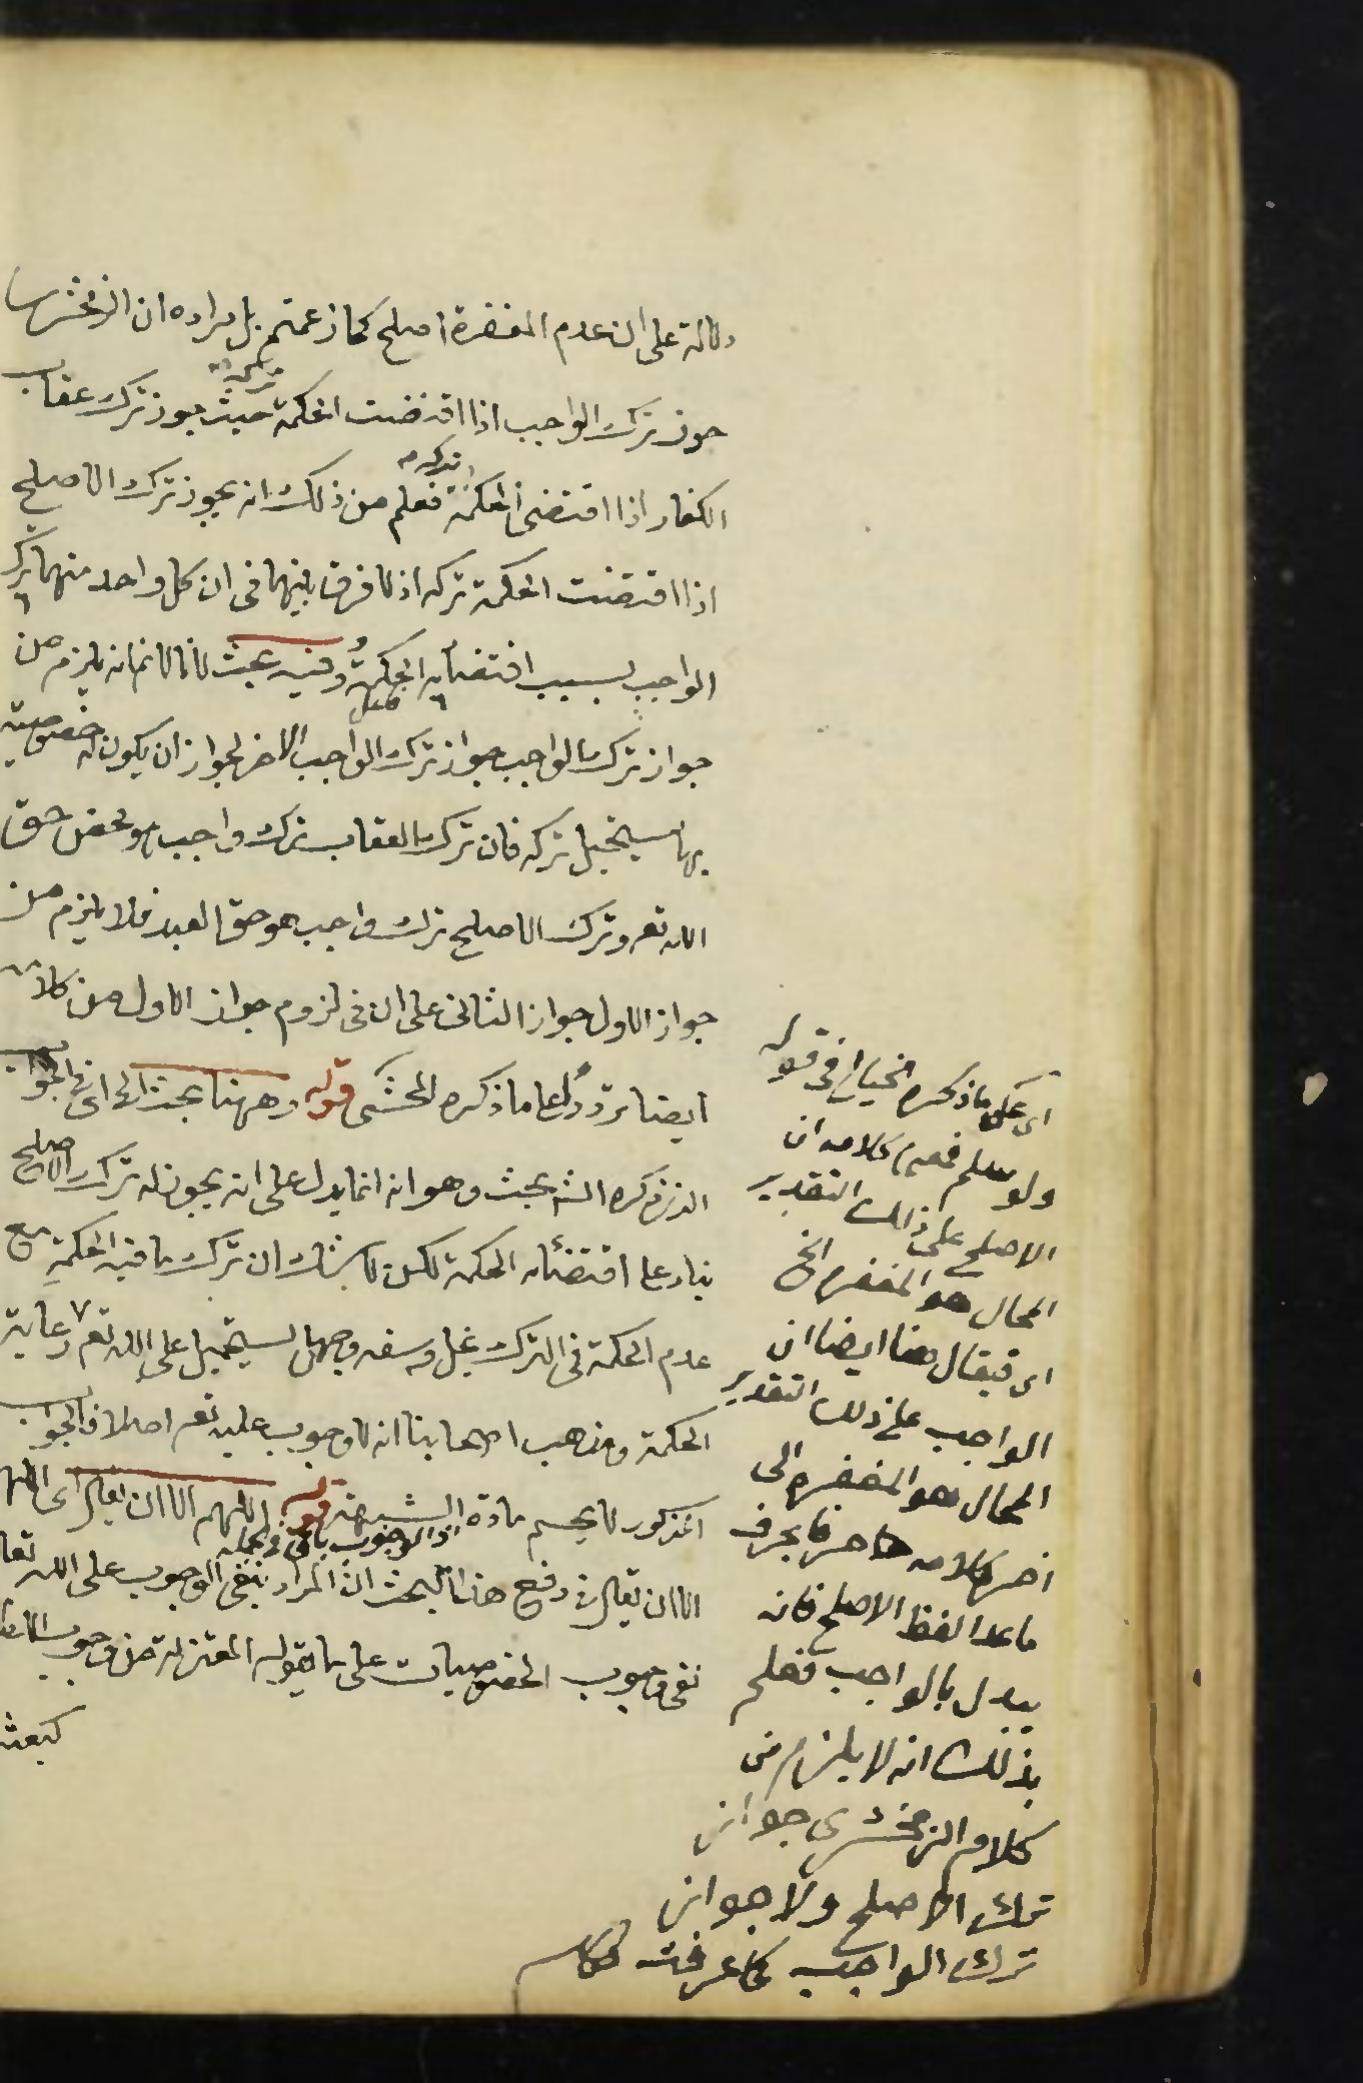 دلالة على ان عدم المغفرة اصلح كما زعمتم بل مراده ان الزمخشرى
جوز ترك الواجب اذا اقتضت الحكمة تركه حيث جوز ترك عقاب
الكفار اذا اقتضى الحكمة تركه فعلم من ذلك انه يجوز ترك الاصلح
اذا اقتضت الحكمة تركه اذ لا فرق بينهما فى ان كل واحد منهما ترك
الواجب بسبب اقتضائه الحكمة وفيه بحث لانا لا نم انه يلزم من
جواز ترك الواجب جواز ترك الواجب الاخر لجواز ان يكون له خصوصية
بها يستحيل تركه فان ترك العقاب ترك واجب هو محض حق
الله تعه وترك الاصلح ترك واجب هو حق العبد فلا يلزم من
جواز الاول جواز الثانى على ان فى لزوم جواز الاول من كلامه
ايضا تردد على ما ذكره المحشى قوله وههنا بحث الى اى فى الجواب
الذى ذكره الشه بحث وهو انه انما يدل على انه يجوز له ترك الاصلح
بناء على اقتضائه الحكمة لكن لا شك ان ترك ما فيه الحكمة مع
عدم الحكمة فى الترك بخل وسفه وجهل يستحيل على الله تعه ورعاية
الحكمة ومذهب اصحابنا انه لا وجوب عليه تعه اصلا فالجواب
المذكور لا يحسم مادة الشبهة قوله اللهم الا ان يقال اى اللهم
الا ان يقال فى دفع هذا البحث ان المراد بنفى الوجوب على الله تعا
نفى وجوب الخصوصيات على ما يقوله المعتزلة من وجوب
كبعثة
اى على ما ذكره الخيالى فى قوله
ولو سلم فمعنى كلامه ان
الاصلح على ذلك التقدير
المحال هو المغفرة الخ
اى فيقال هنا ايضا ان
الواجب على ذلك التقدير
المحال هو المغفرة الى
اخر كلامه
ما عدا لفظ الاصلح فانه
يبدل بالواجب فعلم
بذلك انه لا يلزم من
كلام الزمخشرى جواز
ترك الاصلح ولا جواز
ترك الواجب كما عرفت